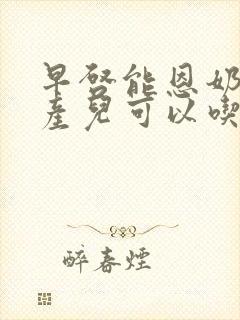 早啓能恩奶
產兒可以喫
醉春煙